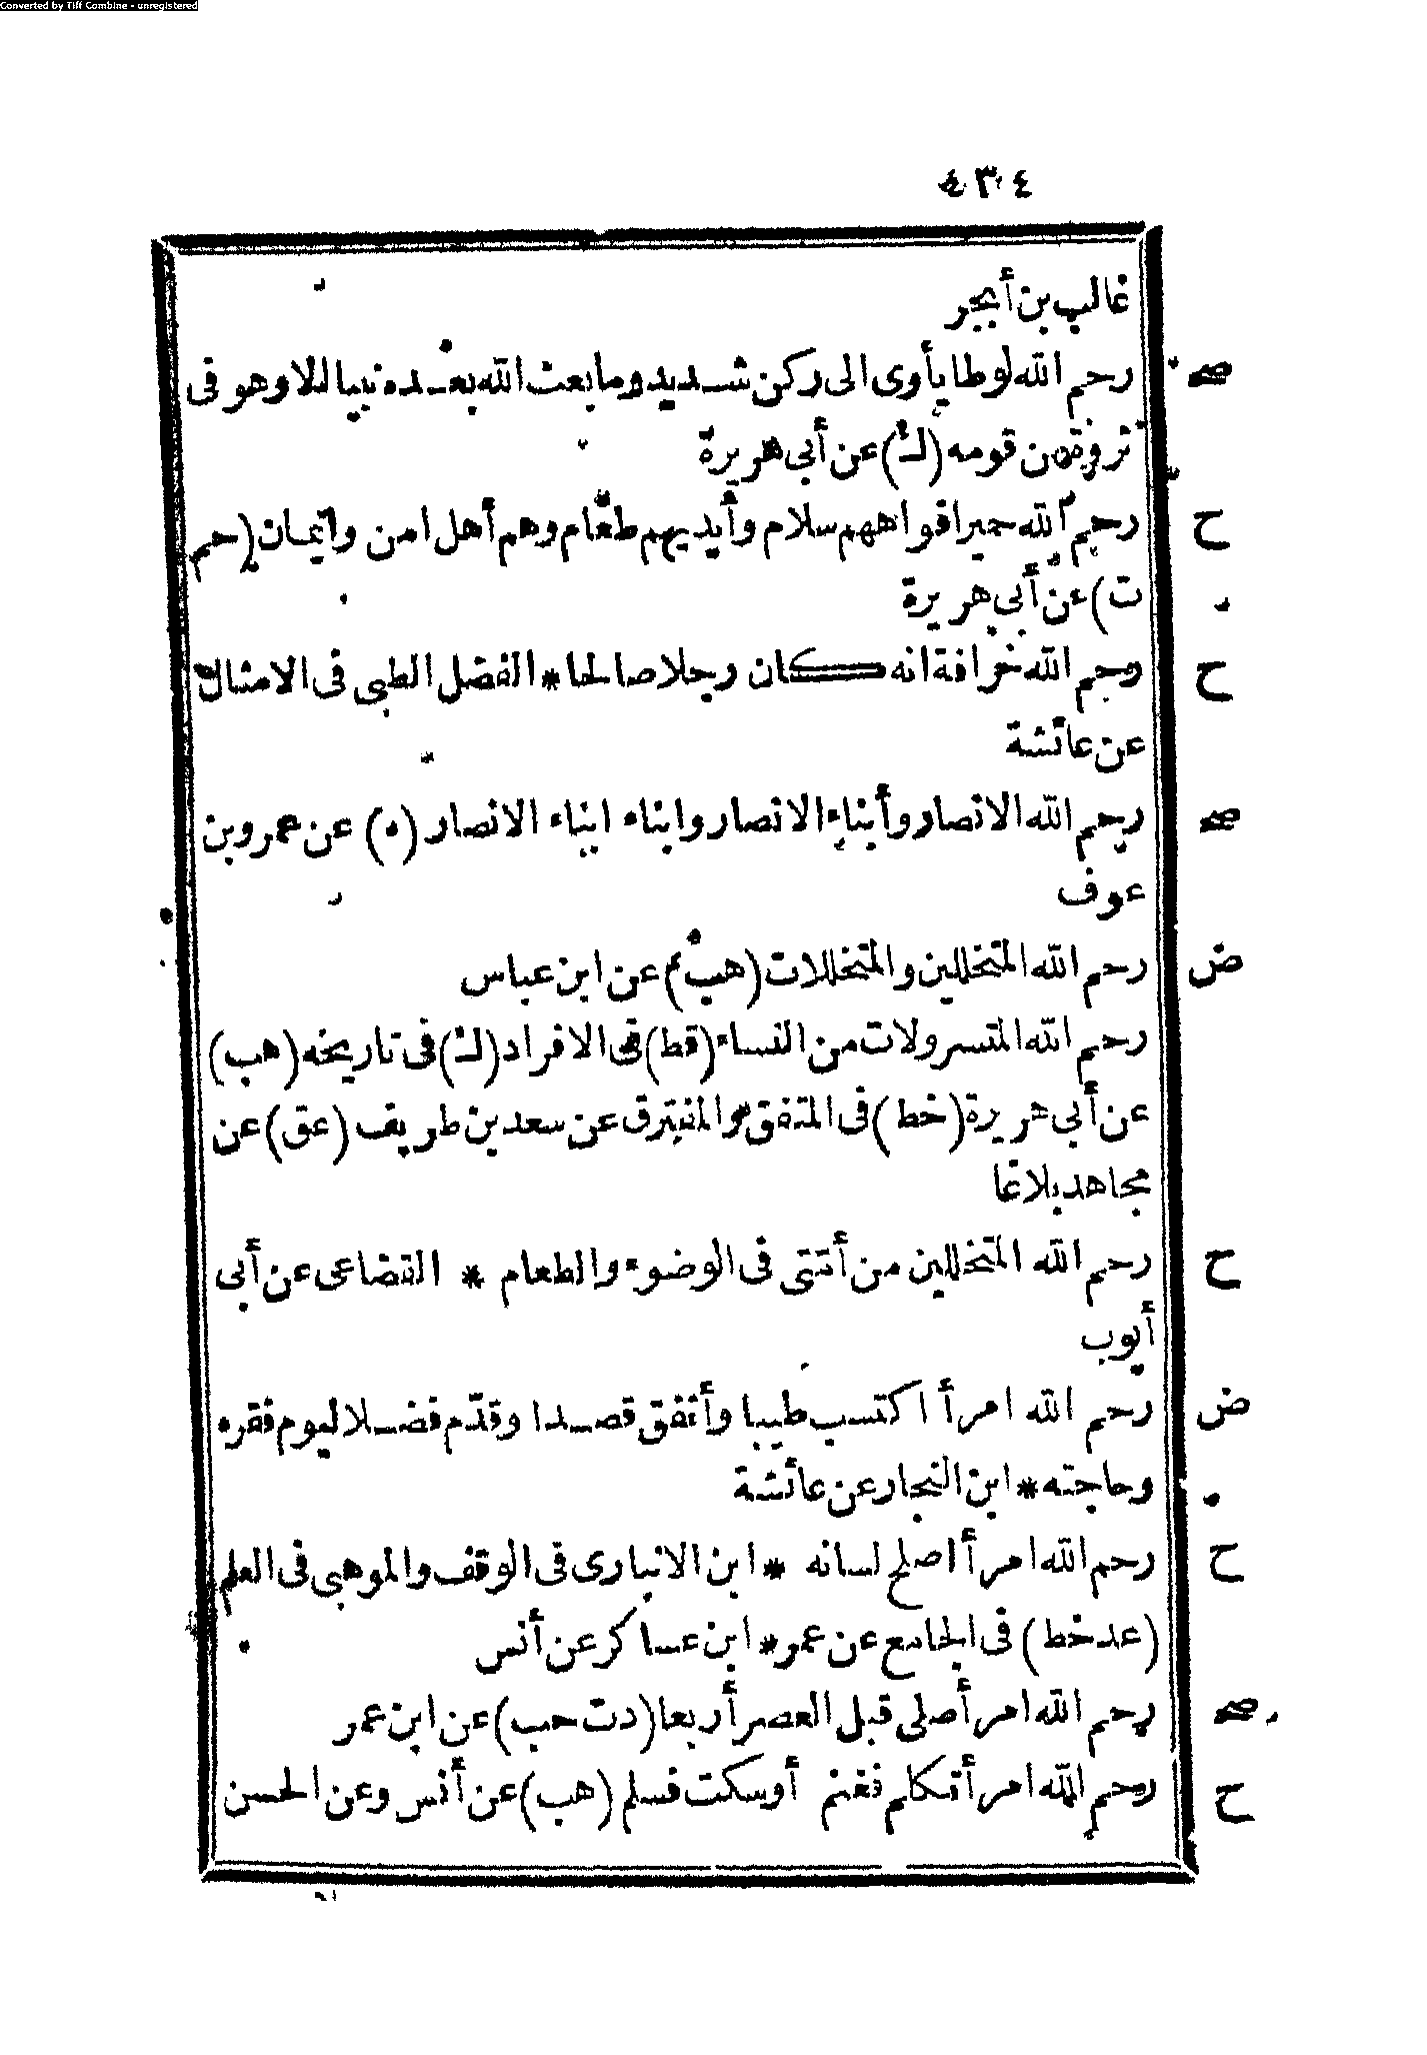 Converted by Tiff Combine - unregistered
٤٣٤
غالب بن أبجر
صح رحم الله لوطا يأوى الى ركن شديد وما بعث الله بعده نبيا الا وهو فى
ثروة من قومه (ك) عن أبى هريرة
ح رحم الله حميرا افواههم سلام وأيديهم طعام وهم أهل امن وايمان (حم
ت) عن أبى هريرة
ح رحم الله خرافة انه كان رجلا صالحا * الفضل الطبى فى الامثال
عن عائشة
صح رحم الله الانصار وأبناء الانصار وابناء ابناء الانصار (ه) عن عمرو بن
عوف
ض رحم الله المتخللين والمتخللات (هب) عن ابن عباس
رحم الله المتسرولات من النساء (قط) فى الافراد (ك) فى تاريخه (هب)
عن أبى هريرة (خط) فى المتفق والمفترق عن سعد بن طريف (عق) عن
مجاهد بلاغا
ح رحم الله المتخللين من أمتى فى الوضوء والطعام * القضاعى عن أبى
أيوب
ض رحم الله امرأ اكتسب طيبا وأنفق قصدا وقدّم فضلا ليوم فقره
وحاجته * ابن النجار عن عائشة
ح رحم الله امرأ اصلح لسانه * ابن الانبارى فى الوقف والموهبى فى العلم
(عد خط) فى الجامع عن عمر * ابن عساكر عن أنس
صح رحم الله امرأ صلى قبل العصر أربعا (دت حب) عن ابن عمر
ح رحم الله امرأ تكلم فغنم أوسكت فسلم (هب) عن أنس وعن الحسن